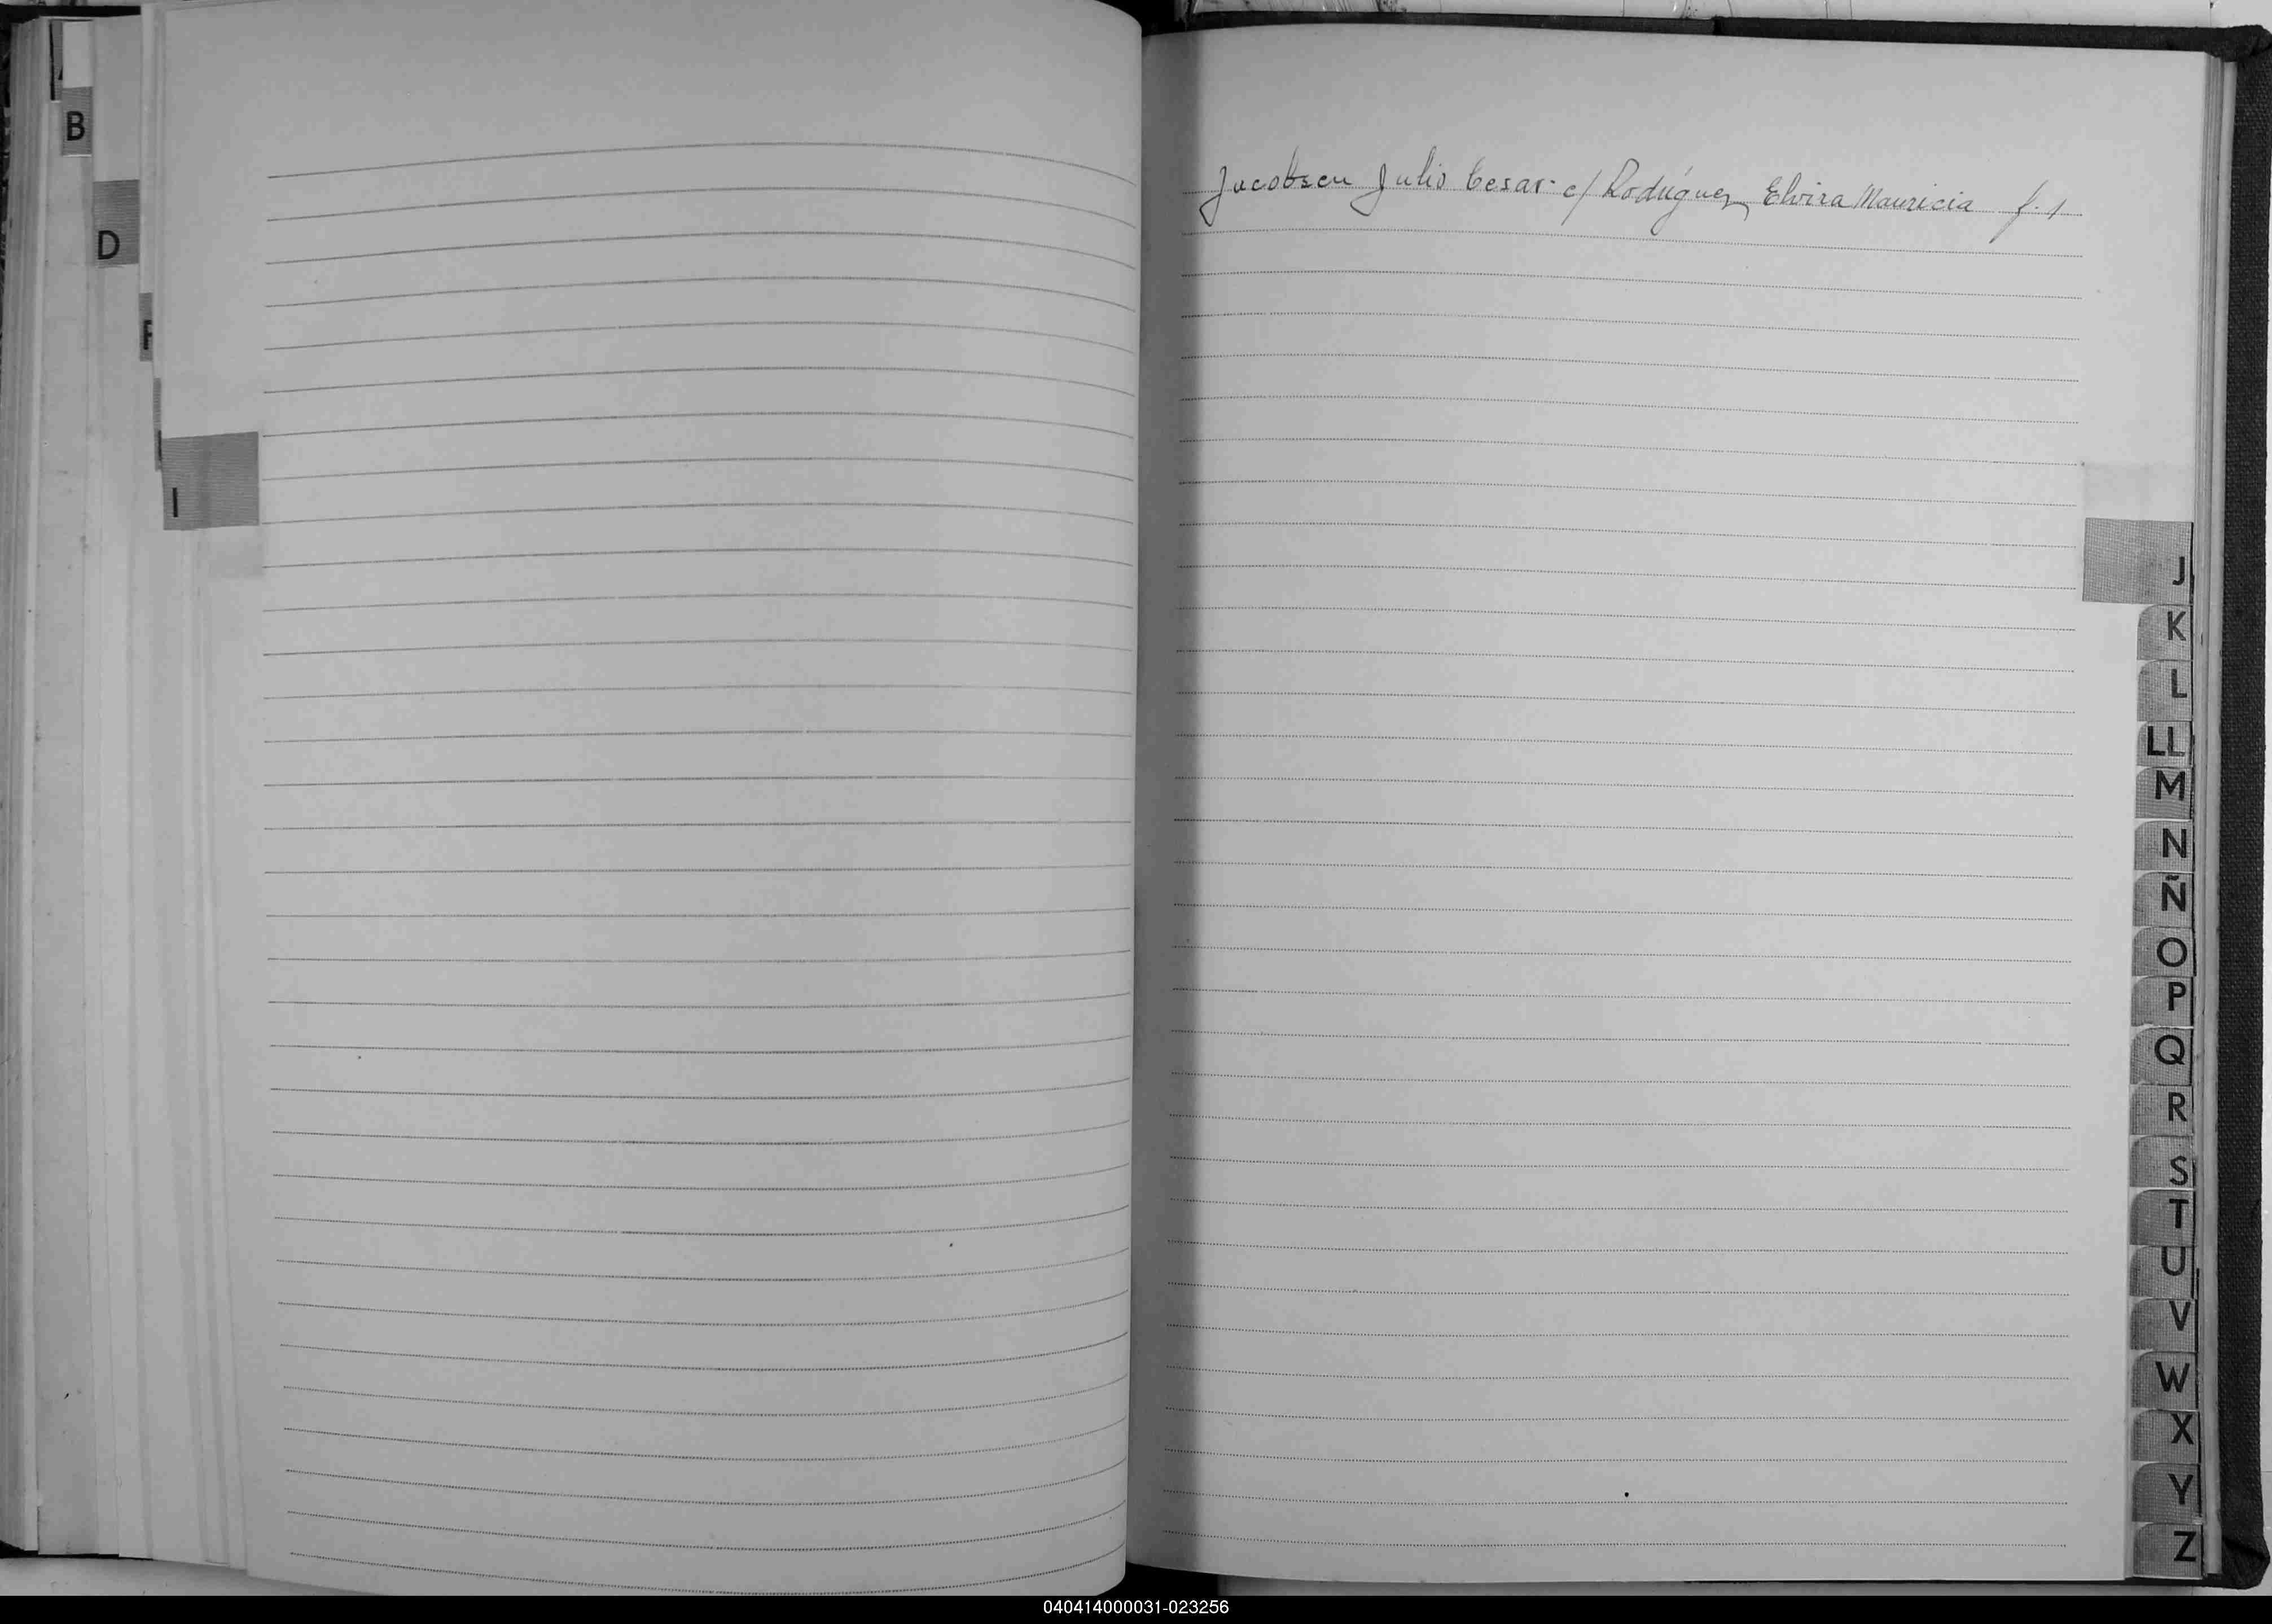 Jacobsen Julio Cesar c/ Rodríguez Elvira Mauricia f. 1
B
D
F
I
J
K
L
LL
M
N
Ñ
O
P
Q
R
S
T
U
V
W
X
Y
Z
040414000031-023256